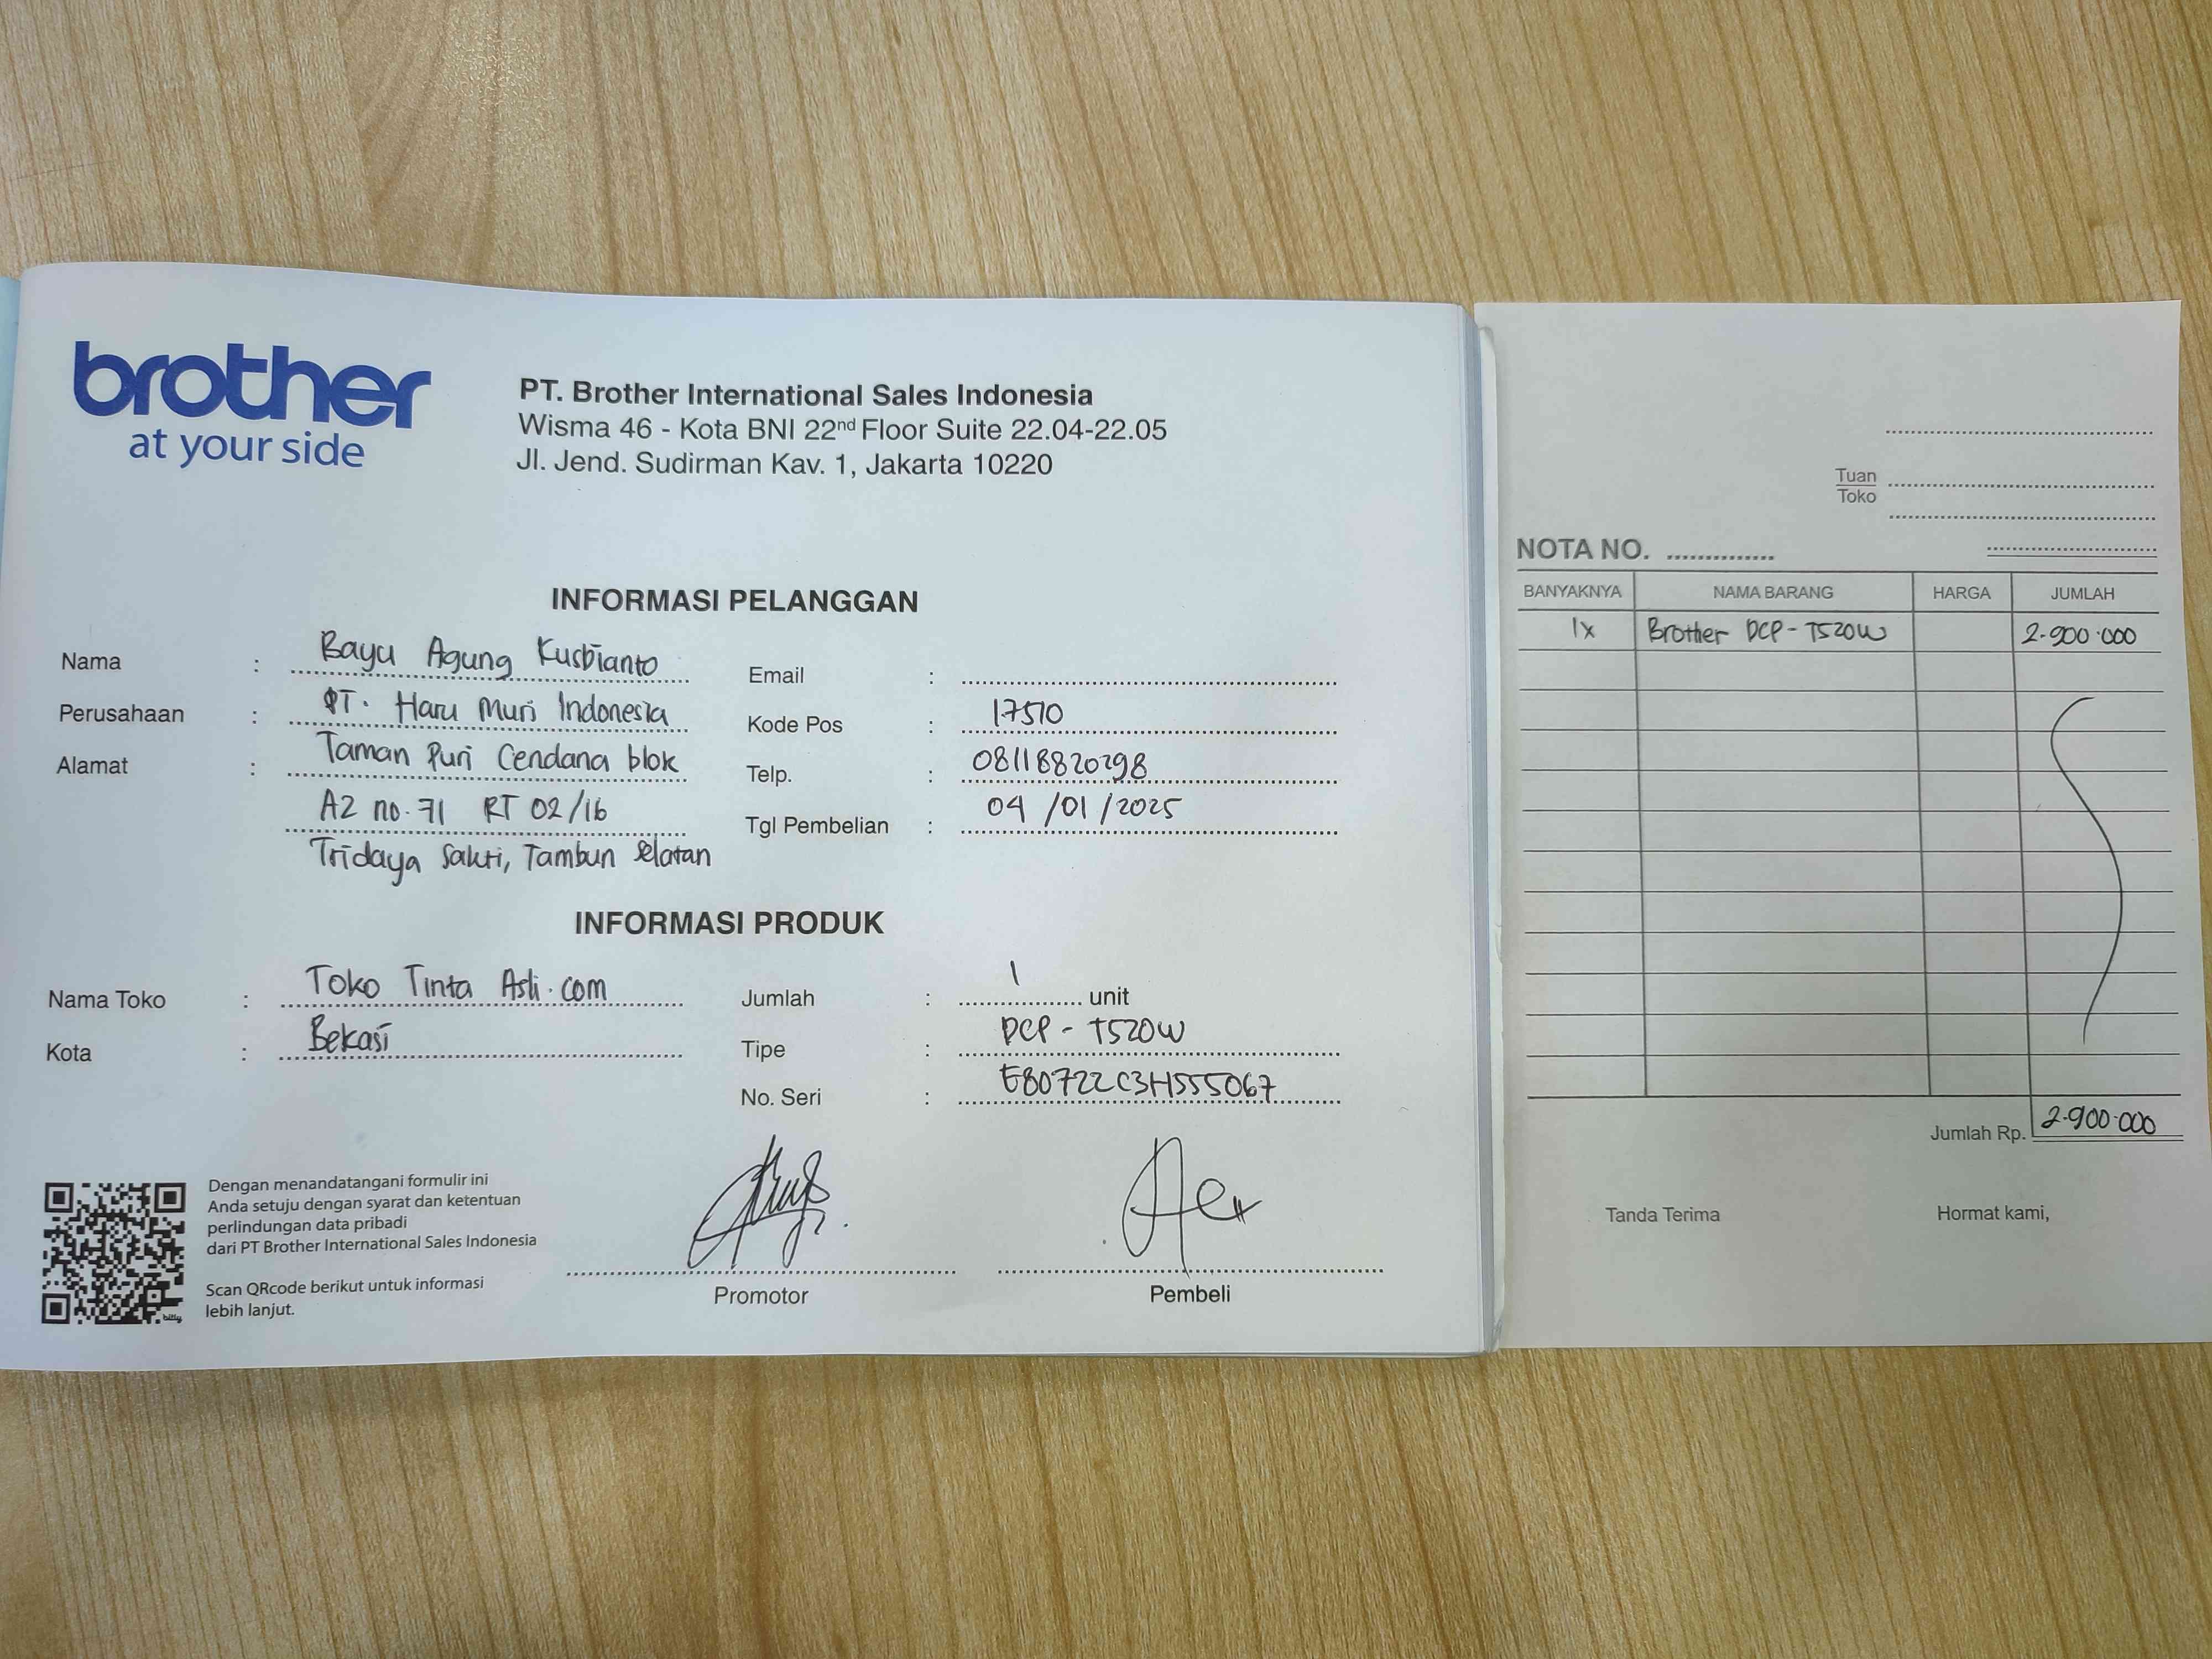 brother
at your side
PT. Brother International Sales Indonesia
Wisma 46 - Kota BNI 22nd Floor Suite 22.04-22.05
Jl. Jend. Sudirman Kav. 1, Jakarta 10220
INFORMASI PELANGGAN
Nama : Bayu Agung Kusbianto
Perusahaan : PT. Haru Muri Indonesia
Alamat : Taman Puri Cendana blok
A2 no. 71 RT 02/16
Tridaya Sakti, Tambun Selatan
Email :
Kode Pos : 17510
Telp. : 08118820298
Tgl Pembelian : 04/01/2025
INFORMASI PRODUK
Nama Toko : Toko Tinta Asli.com
Kota : Bekasi
Jumlah : 1 unit
Tipe : DCP-T520W
No. Seri : E80722C3H555067
Dengan menandatangani formulir ini
Anda setuju dengan syarat dan ketentuan
perlindungan data pribadi
dari PT Brother International Sales Indonesia
Scan QRcode berikut untuk informasi
lebih lanjut.
bitly
Promotor
Pembeli
Tuan
Toko
NOTA NO.
BANYAKNYA NAMA BARANG HARGA JUMLAH
1x Brother DCP-T520W 2.900.000
Jumlah Rp. 2.900.000
Tanda Terima Hormat kami,